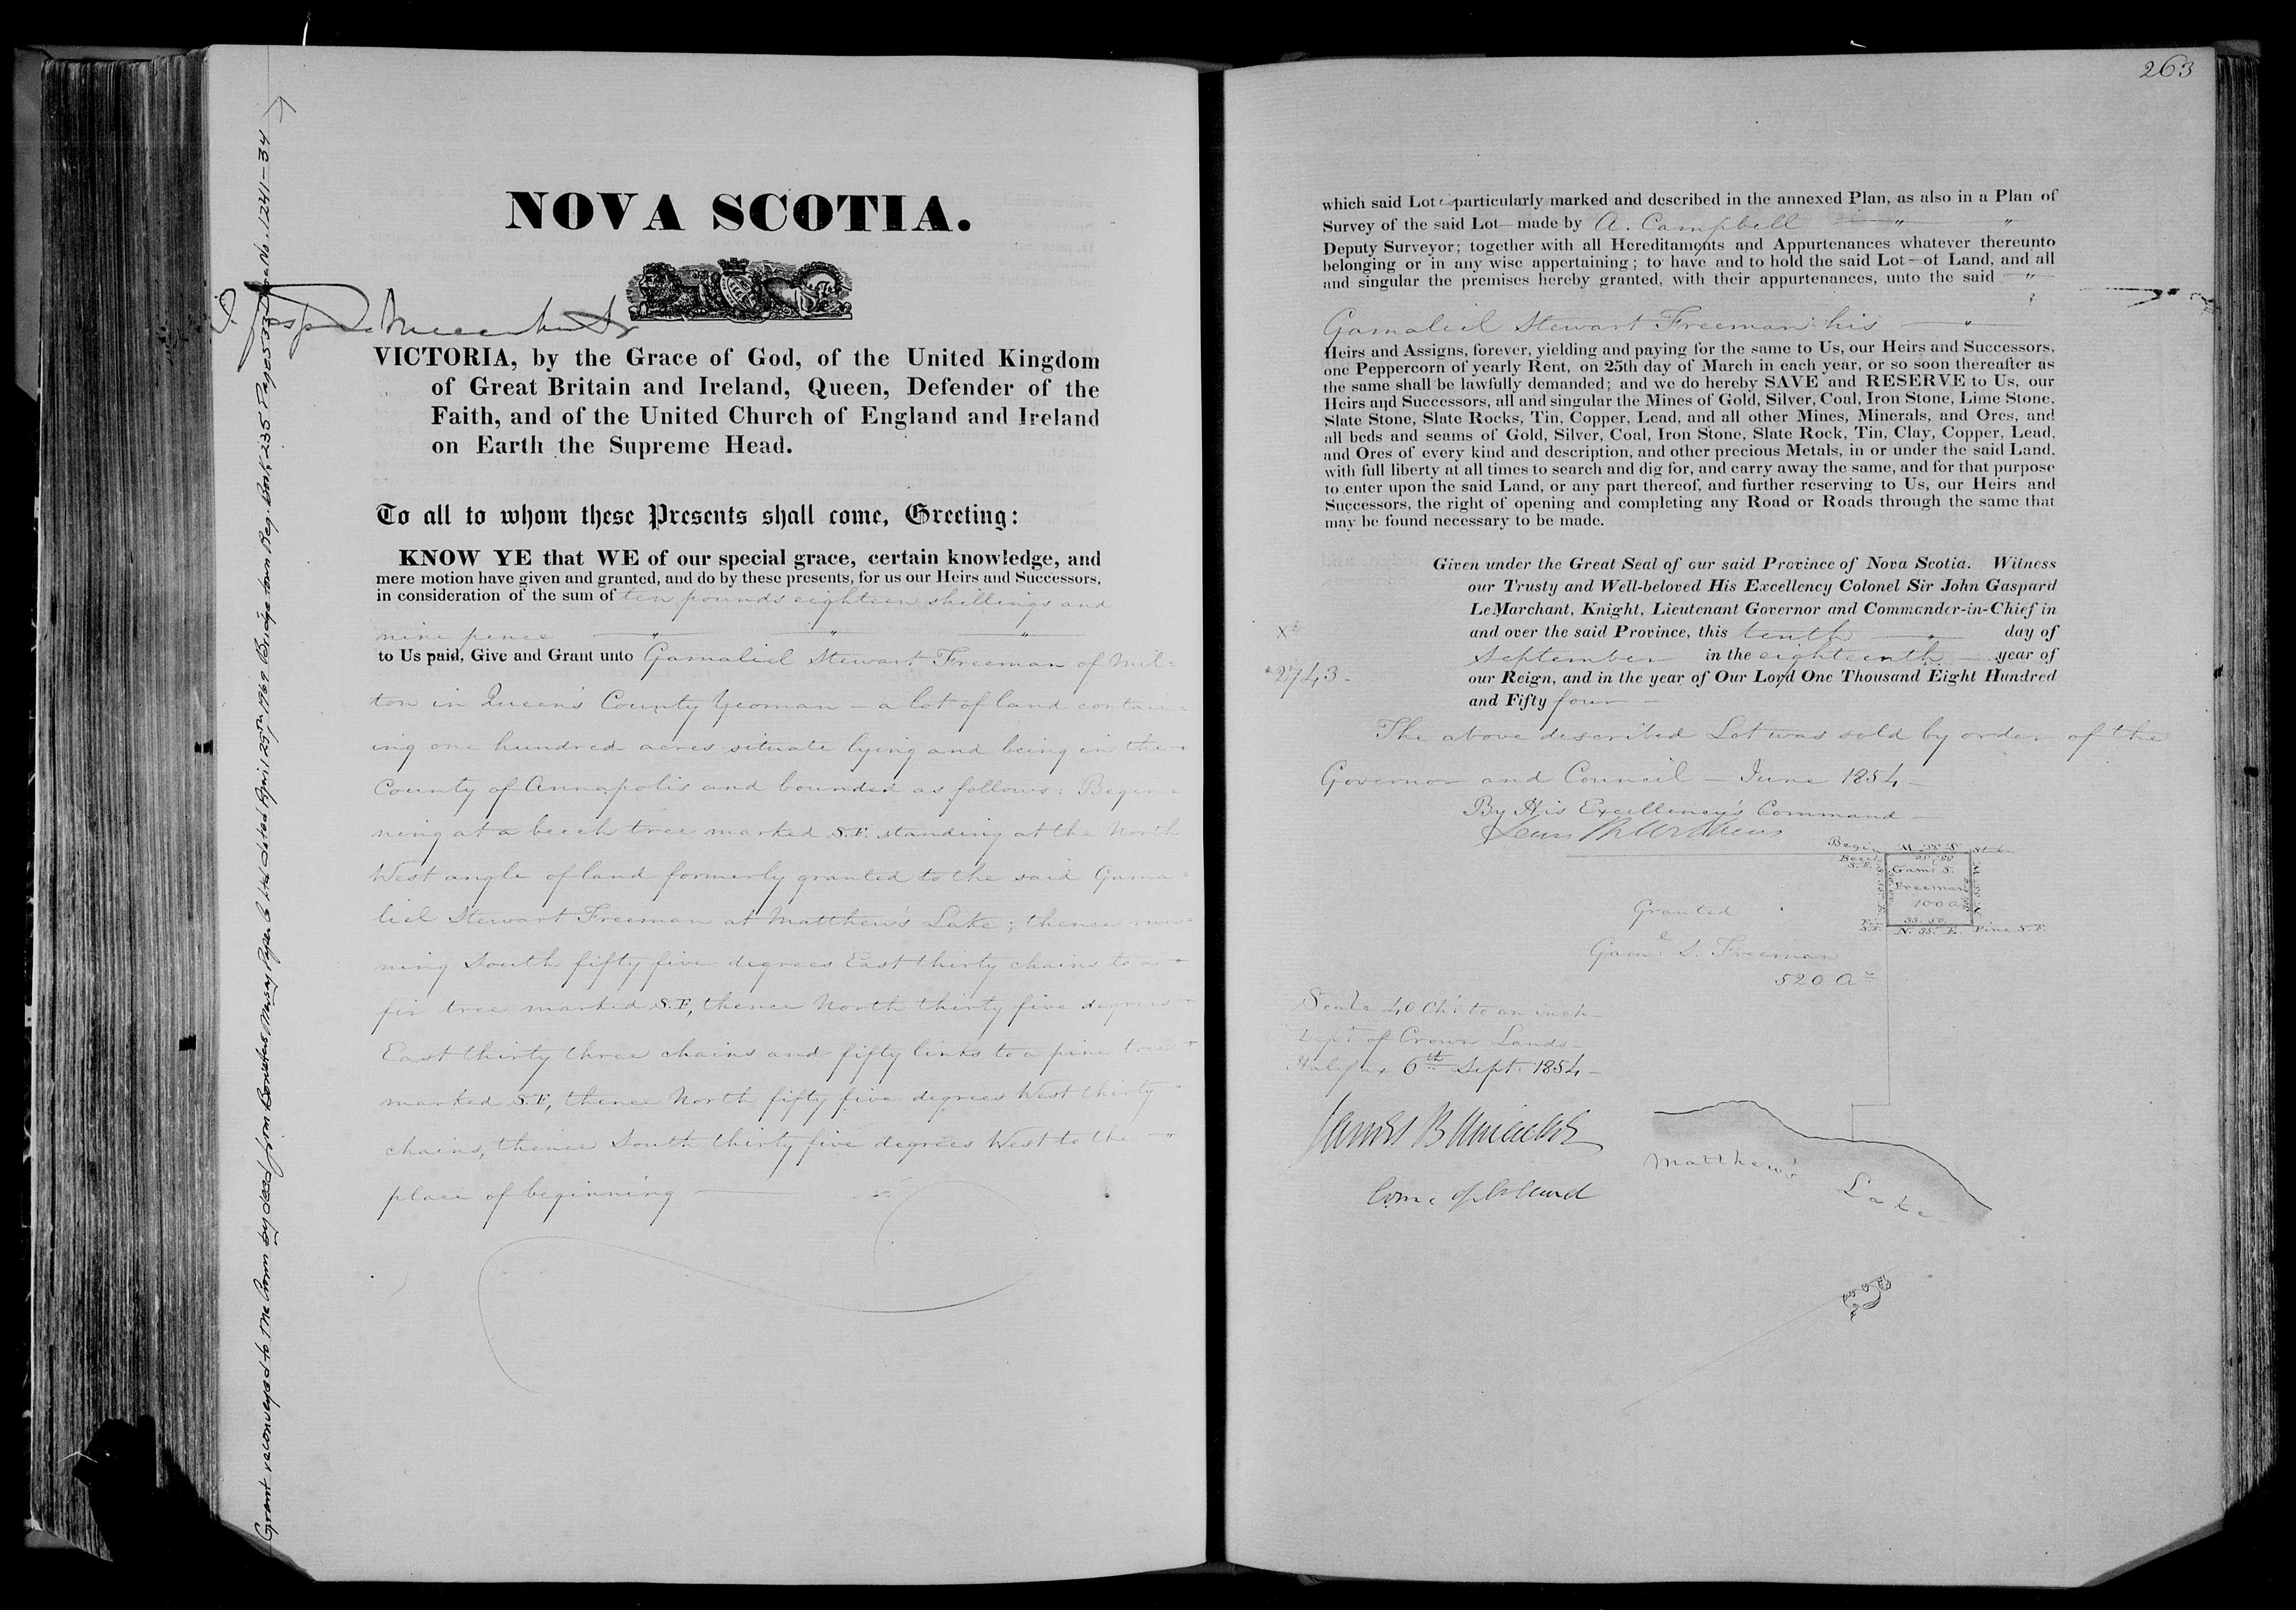 Grant reconveyed to the Crown by deed from Bowaters Mersey Paper Co Ltd dated April 25th 1969 Bridgetown Reg. Book 235 Page 533 No. 1241-34
NOVA SCOTIA.
VICTORIA, by the Grace of God, of the United Kingdom
of Great Britain and Ireland, Queen, Defender of the
Faith, and of the United Church of England and Ireland
on Earth the Supreme Head.
To all to whom these Presents shall come, Greeting:
KNOW YE that WE of our special grace, certain knowledge, and
mere motion have given and granted, and do by these presents, for us our Heirs and Successors,
in consideration of the sum of ten pounds eighteen shillings and
nine pence " " "
to Us paid, Give and Grant unto Gamaliel Stewart Freeman of Mil=
ton in Queen's County Yeoman – a lot of land contain=
ing one hundred acres situate lying and being in the
County of Annapolis and bounded as follows: Begin=
ning at a beech tree marked S.F. standing at the North
West angle of land formerly granted to the said Gama=
liel Stewart Freeman at Matthew's Lake; thence run=
ning South fifty five degrees East thirty chains to a
fir tree marked S.F, thence North thirty five degrees
East thirty three chains and fifty links to a pine tree
marked S.F, thence North fifty five degrees West thirty
chains, thence South thirty five degrees West to the
place of beginning
263
which said Lot is particularly marked and described in the annexed Plan, as also in a Plan of
Survey of the said Lot made by A. Campbell " "
Deputy Surveyor; together with all Hereditaments and Appurtenances whatever thereunto
belonging or in any wise appertaining; to have and to hold the said Lot – of Land, and all
and singular the premises hereby granted, with their appurtenances, unto the said "
Gamaliel Stewart Freeman his "
Heirs and Assigns, forever, yielding and paying for the same to Us, our Heirs and Successors,
one Peppercorn of yearly Rent, on 25th day of March in each year, or so soon thereafter as
the same shall be lawfully demanded; and we do hereby SAVE and RESERVE to Us, our
Heirs and Successors, all and singular the Mines of Gold, Silver, Coal, Iron Stone, Lime Stone,
Slate Stone, Slate Rocks, Tin, Copper, Lead, and all other Mines, Minerals, and Ores, and
all beds and seams of Gold, Silver, Coal, Iron Stone, Slate Rock, Tin, Clay, Copper, Lead,
and Ores of every kind and description, and other precious Metals, in or under the said Land,
with full liberty at all times to search and dig for, and carry away the same, and for that purpose
to enter upon the said Land, or any part thereof, and further reserving to Us, our Heirs and
Successors, the right of opening and completing any Road or Roads through the same that
may be found necessary to be made.
Given under the Great Seal of our said Province of Nova Scotia. Witness
our Trusty and Well-beloved His Excellency Colonel Sir John Gaspard
LeMarchant, Knight, Lieutenant Governor and Commander-in-Chief in
and over the said Province, this tenth " day of
September in the eighteenth year of
2743
our Reign, and in the year of Our Lord One Thousand Eight Hundred
and Fifty four –
The above described Lot was sold by order of the
Governor and Council – June 1854 –
By His Excellency's Command –
Begin
Beech
S.F.
Gaml. S.
Freeman
100 a
33.50
Fir
S.F.
N. 35. E.
Pine S.F.
Granted
Gaml. S. Freeman
520 As
Scale 40 Chs. to an inch
Dept. of Crown Lands
Halifax 6th Sept. 1854 –
James B Uniacke
Matthew's Lake